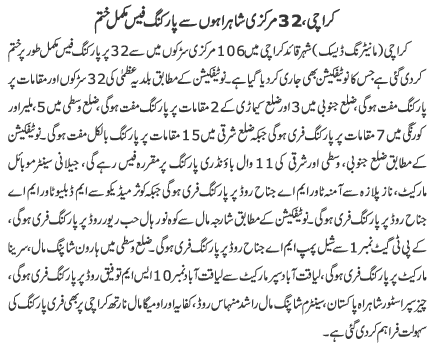 کراچی، 32 مرکزی شاہراہوں سے پارکنگ فیس مکمل ختم
کراچی (مانیٹرنگ ڈیسک) شہر قائد کراچی میں 106 مرکزی سڑکوں میں سے 32 پر پارکنگ فیس مکمل طور پر ختم
کردی گئی ہے جس کا نوٹیفکیشن بھی جاری کردیا گیا ہے۔ نوٹیفکیشن کے مطابق بلدیہ عظمٰی کی 32 سڑکوں اور مقامات پر
پارکنگ مفت ہوگی، ضلع جنوبی میں 3 اور ضلع کیماڑی کے 2 مقامات پر پارکنگ مفت ہوگی، ضلع وسطی میں 5، ملیر اور
کورنگی میں 7 مقامات پر پارکنگ فری ہوگی جبکہ ضلع شرقی میں 15 مقامات پر پارکنگ بالکل مفت ہوگی۔ نوٹیفکیشن
کے مطابق ضلع جنوبی، وسطی اور شرقی کی 11 وال باؤنڈری پارکنگ پر مقررہ فیس رہے گی، جیلانی سینٹر موبائل
مارکیٹ، ناز پلازہ سے آمنہ ٹاور ایم اے جناح روڈ پر پارکنگ فری ہوگی جبکہ کوثر میڈیکو سے ایم ڈبلیو ٹاور ایم اے
جناح روڈ پر پارکنگ فری ہوگی۔ نوٹیفکیشن کے مطابق شارجہ مال سے کوہ نور ہال حب ریور روڈ پر پارکنگ فری ہوگی،
کے پی ٹی گیٹ نمبر 1 سے شیل پمپ ایم اے جناح روڈ پر پارکنگ فری ہوگی۔ ضلع وسطی میں ہارون شاپنگ مال، سرینا
مارکیٹ پر پارکنگ فری ہوگی، لیاقت آباد سپر مارکیٹ سے لیاقت آباد نمبر 10 ایس ایم توفیق روڈ پر پارکنگ فری ہوگی،
چیز سپر اسٹور شاہراہ پاکستان، سینٹرم شاپنگ مال راشد منہاس روڈ، کفایہ اور اومیگا مال نارتھ کراچی پر بھی فری پارکنگ کی
سہولت فراہم کردی گئی ہے۔